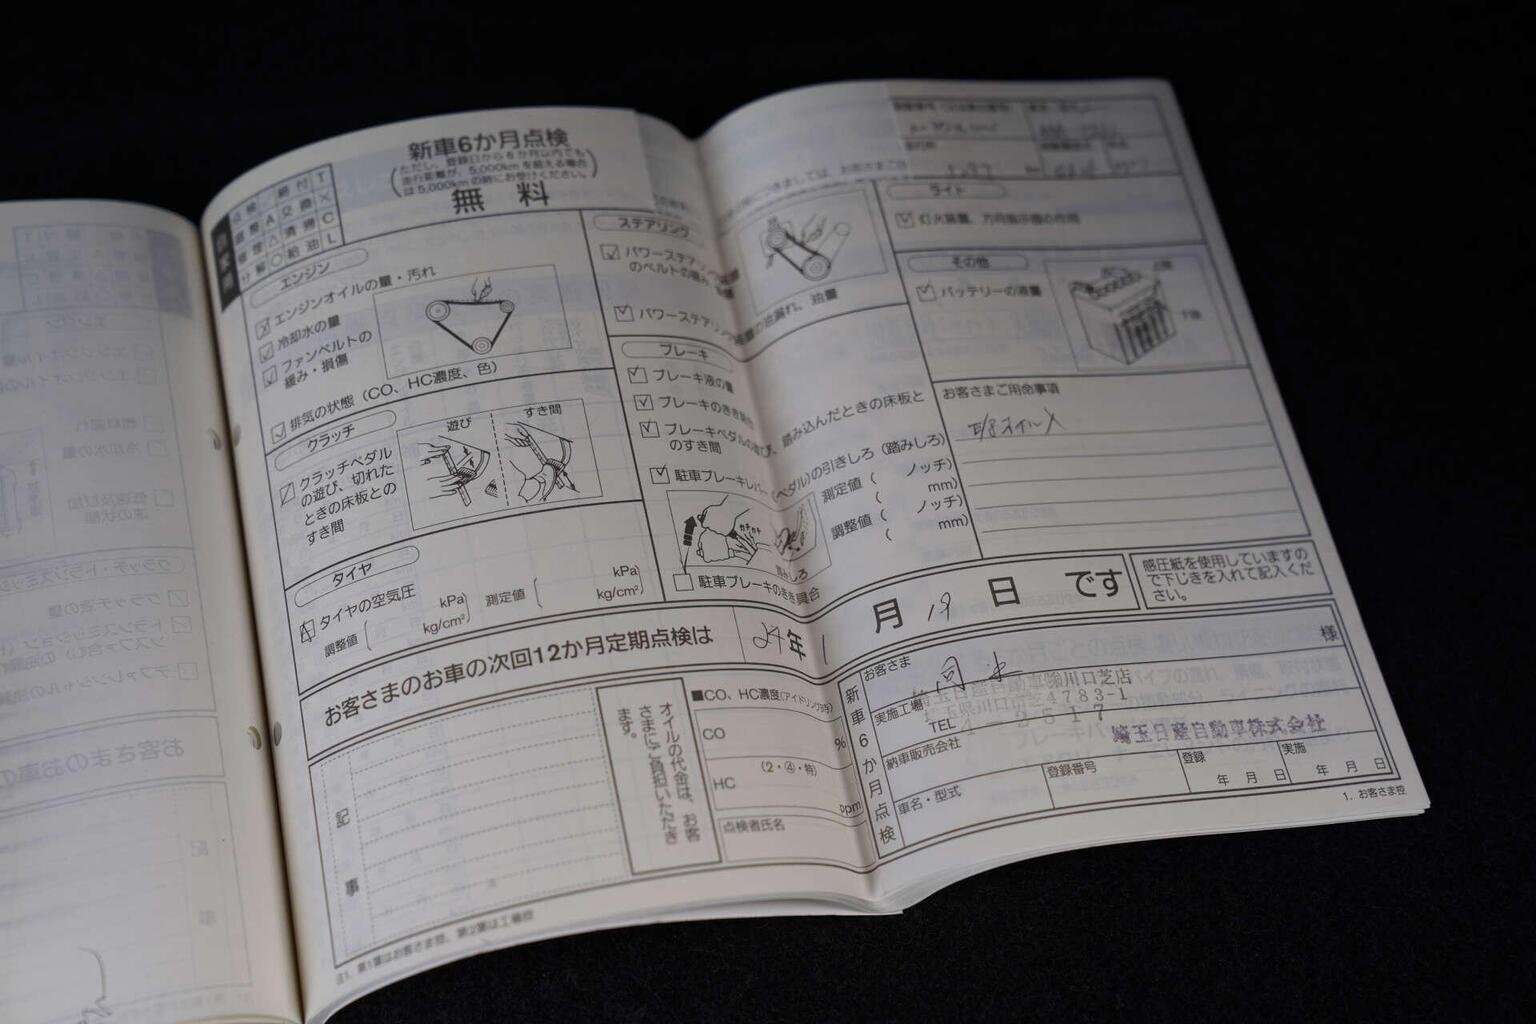 新車6か月点検
(ただし、登録日から6か月以内でも
走行距離が、5,000kmを超える場合
は5,000kmの時にお受けください。)
無料
点検 レ 締付 T
調整 A 交換 X
修理 △ 清掃 C
分解 ○ 給油 L
エンジン
エンジンオイルの量・汚れ
冷却水の量
ファンベルトの
緩み・損傷
排気の状態(CO、HC濃度、色)
クラッチ
クラッチペダル
の遊び、切れた
ときの床板との
すき間
遊び
すき間
タイヤ
タイヤの空気圧
調整値( kPa)
kg/cm²)
測定値( kPa)
kg/cm²)
ステアリング
パワーステアリング
のベルトの緩み
パワーステアリング
の油漏れ、油量
ブレーキ
ブレーキ液の量
ブレーキのきき具合
ブレーキペダルの遊び、踏み込んだときの床板と
のすき間
駐車ブレーキレバー(ペダル)の引きしろ(踏みしろ)
測定値( ノッチ)
( mm)
調整値( ノッチ)
( mm)
カチカチ
引きしろ
駐車ブレーキのきき具合
ライト
灯火装置、方向指示器の作用
その他
バッテリーの液量
上限
下限
お客さまご用命事項
お客さまのお車の次回12か月定期点検は
24年 1月 19日です
感圧紙を使用していますの
で下じきを入れて記入くだ
さい。
記事
オイルの代金は、お客
さまにご負担いただき
ます。
■CO、HC濃度(アイドリング時)
CO %
(2・④・特)
HC ppm
点検者氏名
新車6か月点検
お客さま 様
実施工場
川口芝店
県川口市芝4783-1
TEL
納車販売会社
埼玉日産自動車株式会社
車名・型式
登録番号
登録 年 月 日
実施 年 月 日
1. お客さま控
注1. 第1葉はお客さま控、第2葉は工場控